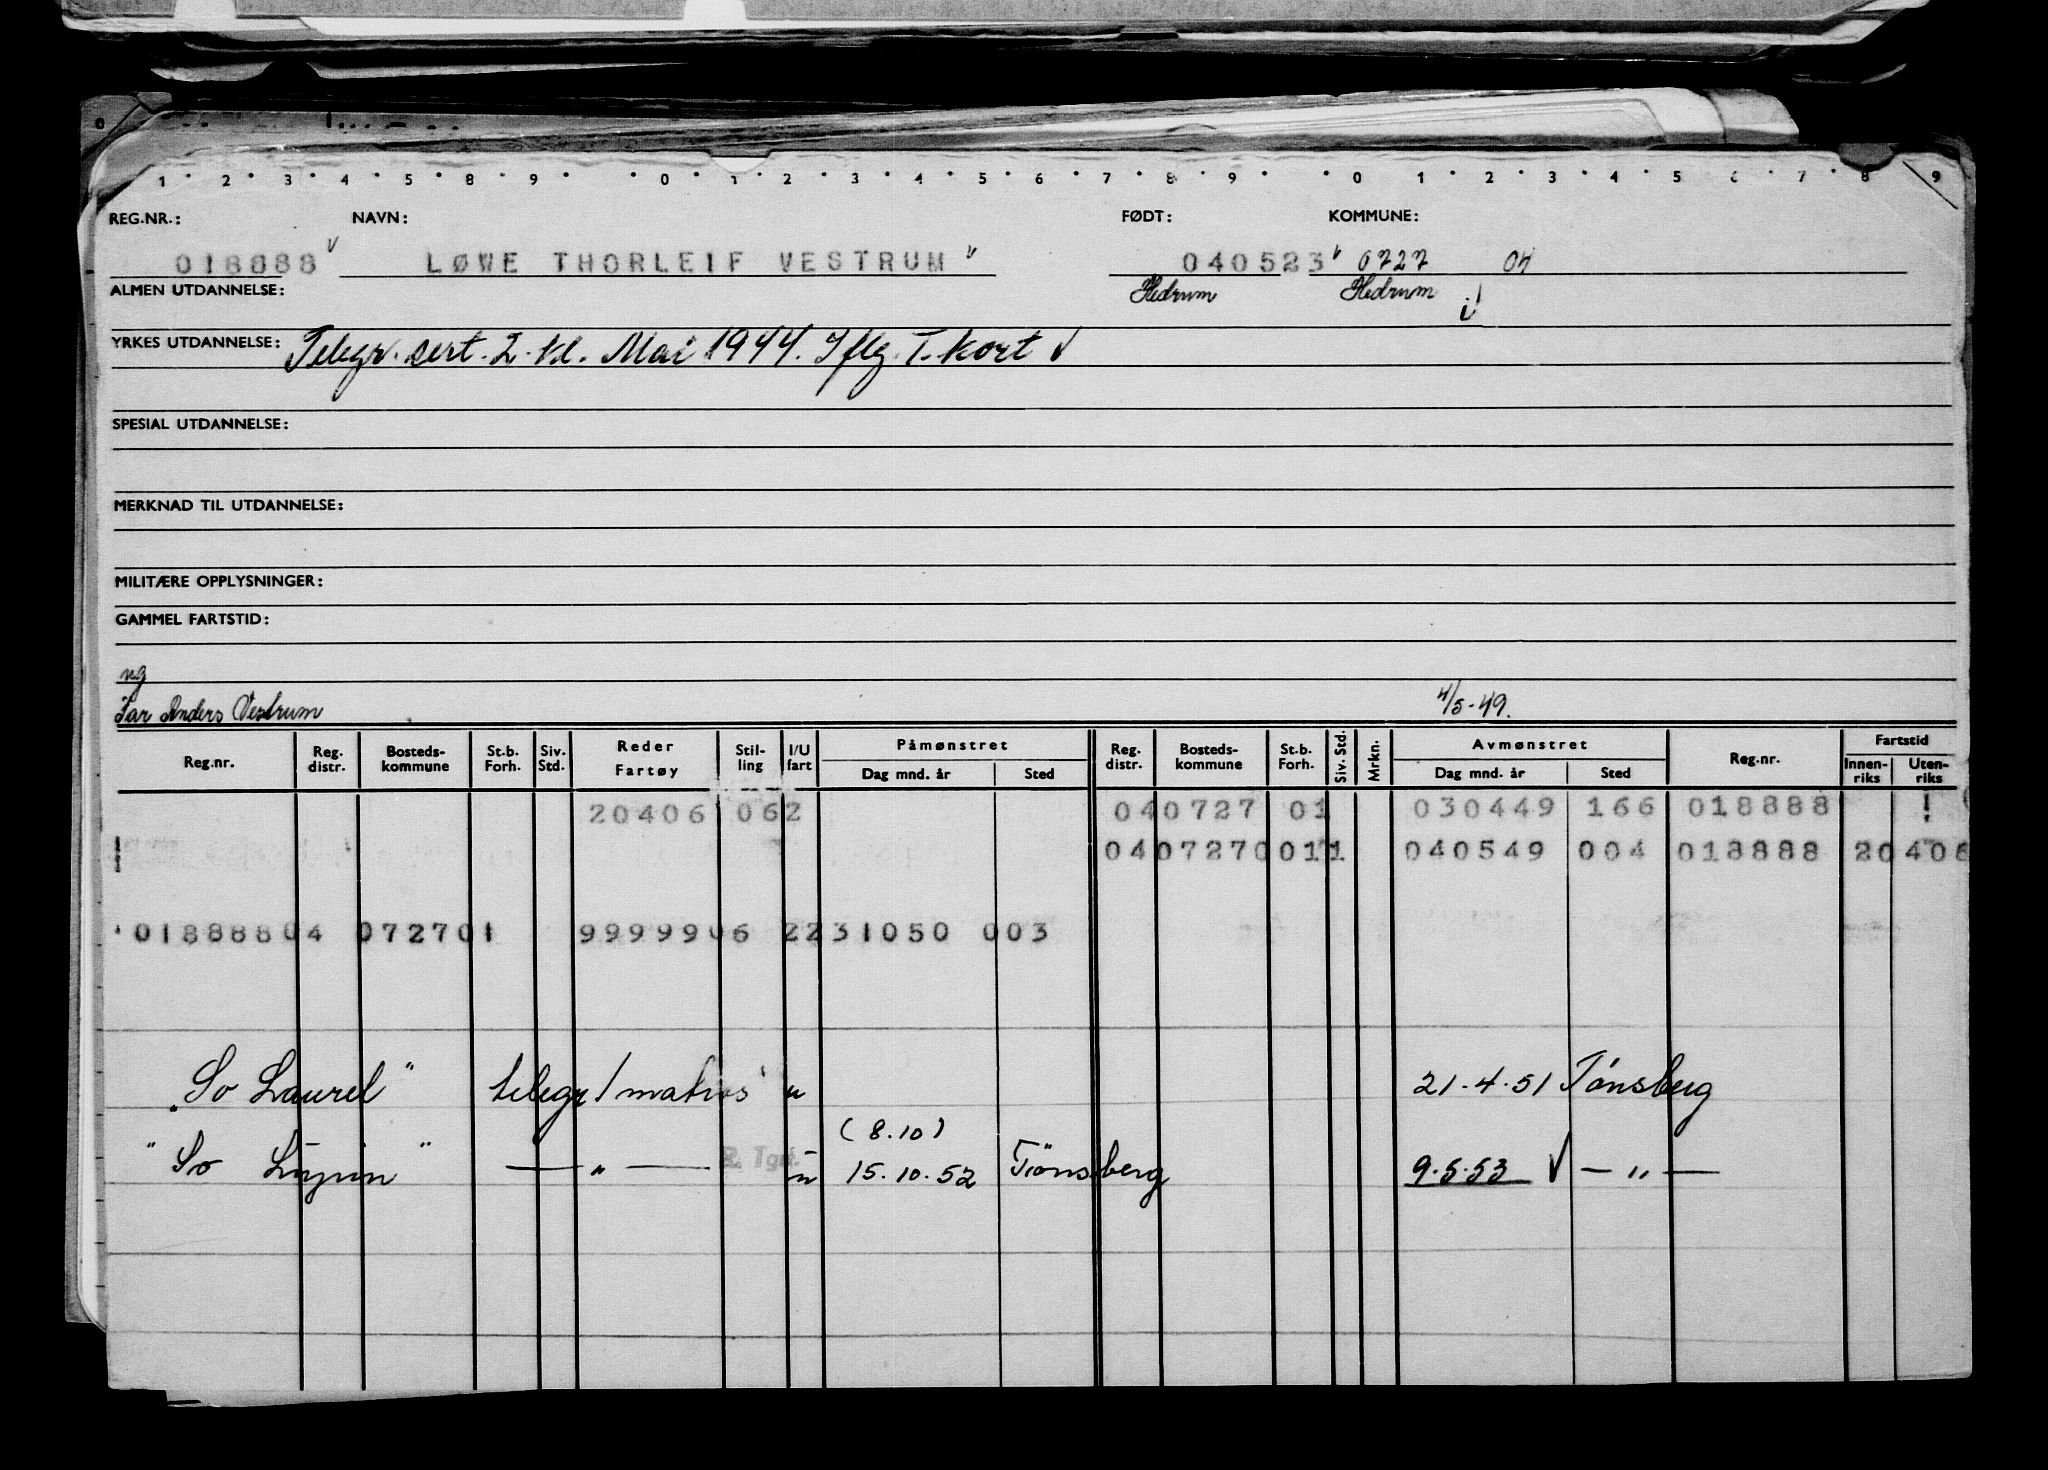 0 1 2 3 4 5 8 9 0 1 2 3 4 5 6 7 8 9 0 1 2 3 4 5 6 7 8 9
REG.NR.: NAVN: FØDT: KOMMUNE:
018888 LØWE THORLEIF VESTRUM 040523 0727 04
ALMEN UTDANNELSE: Hedrum Hedrum
YRKES UTDANNELSE: Telegr. sert. 2. kl. Mai 1944. Iflg. T. kort
SPESIAL UTDANNELSE:
MERKNAD TIL UTDANNELSE:
MILITÆRE OPPLYSNINGER:
GAMMEL FARTSTID:
ug
Far Anders Vestrum 4/5-49.
Reg.nr. Reg. distr. Bosteds-kommune St.b. Forh. Siv. Std. Reder Fartøy Stil-ling I/U fart Påmønstret Dag mnd. år Sted Reg. distr. Bosteds-kommune St.b. Forh. Siv. Std. Mrkn. Avmønstret Dag mnd. år Sted Reg.nr. Fartstid Innen-riks Uten-riks
20406 062 040727 01 030449 166 018888
0407270011 040549 004 018888 20406
01888804 072701 9999906 2231050 003
"So Laurel" telegr/matros u 21.4.51 Tönsberg
(8.10)
" So " — " — 2. Tgr. u 15.10.52 Tönsberg 9.5.53 — " —